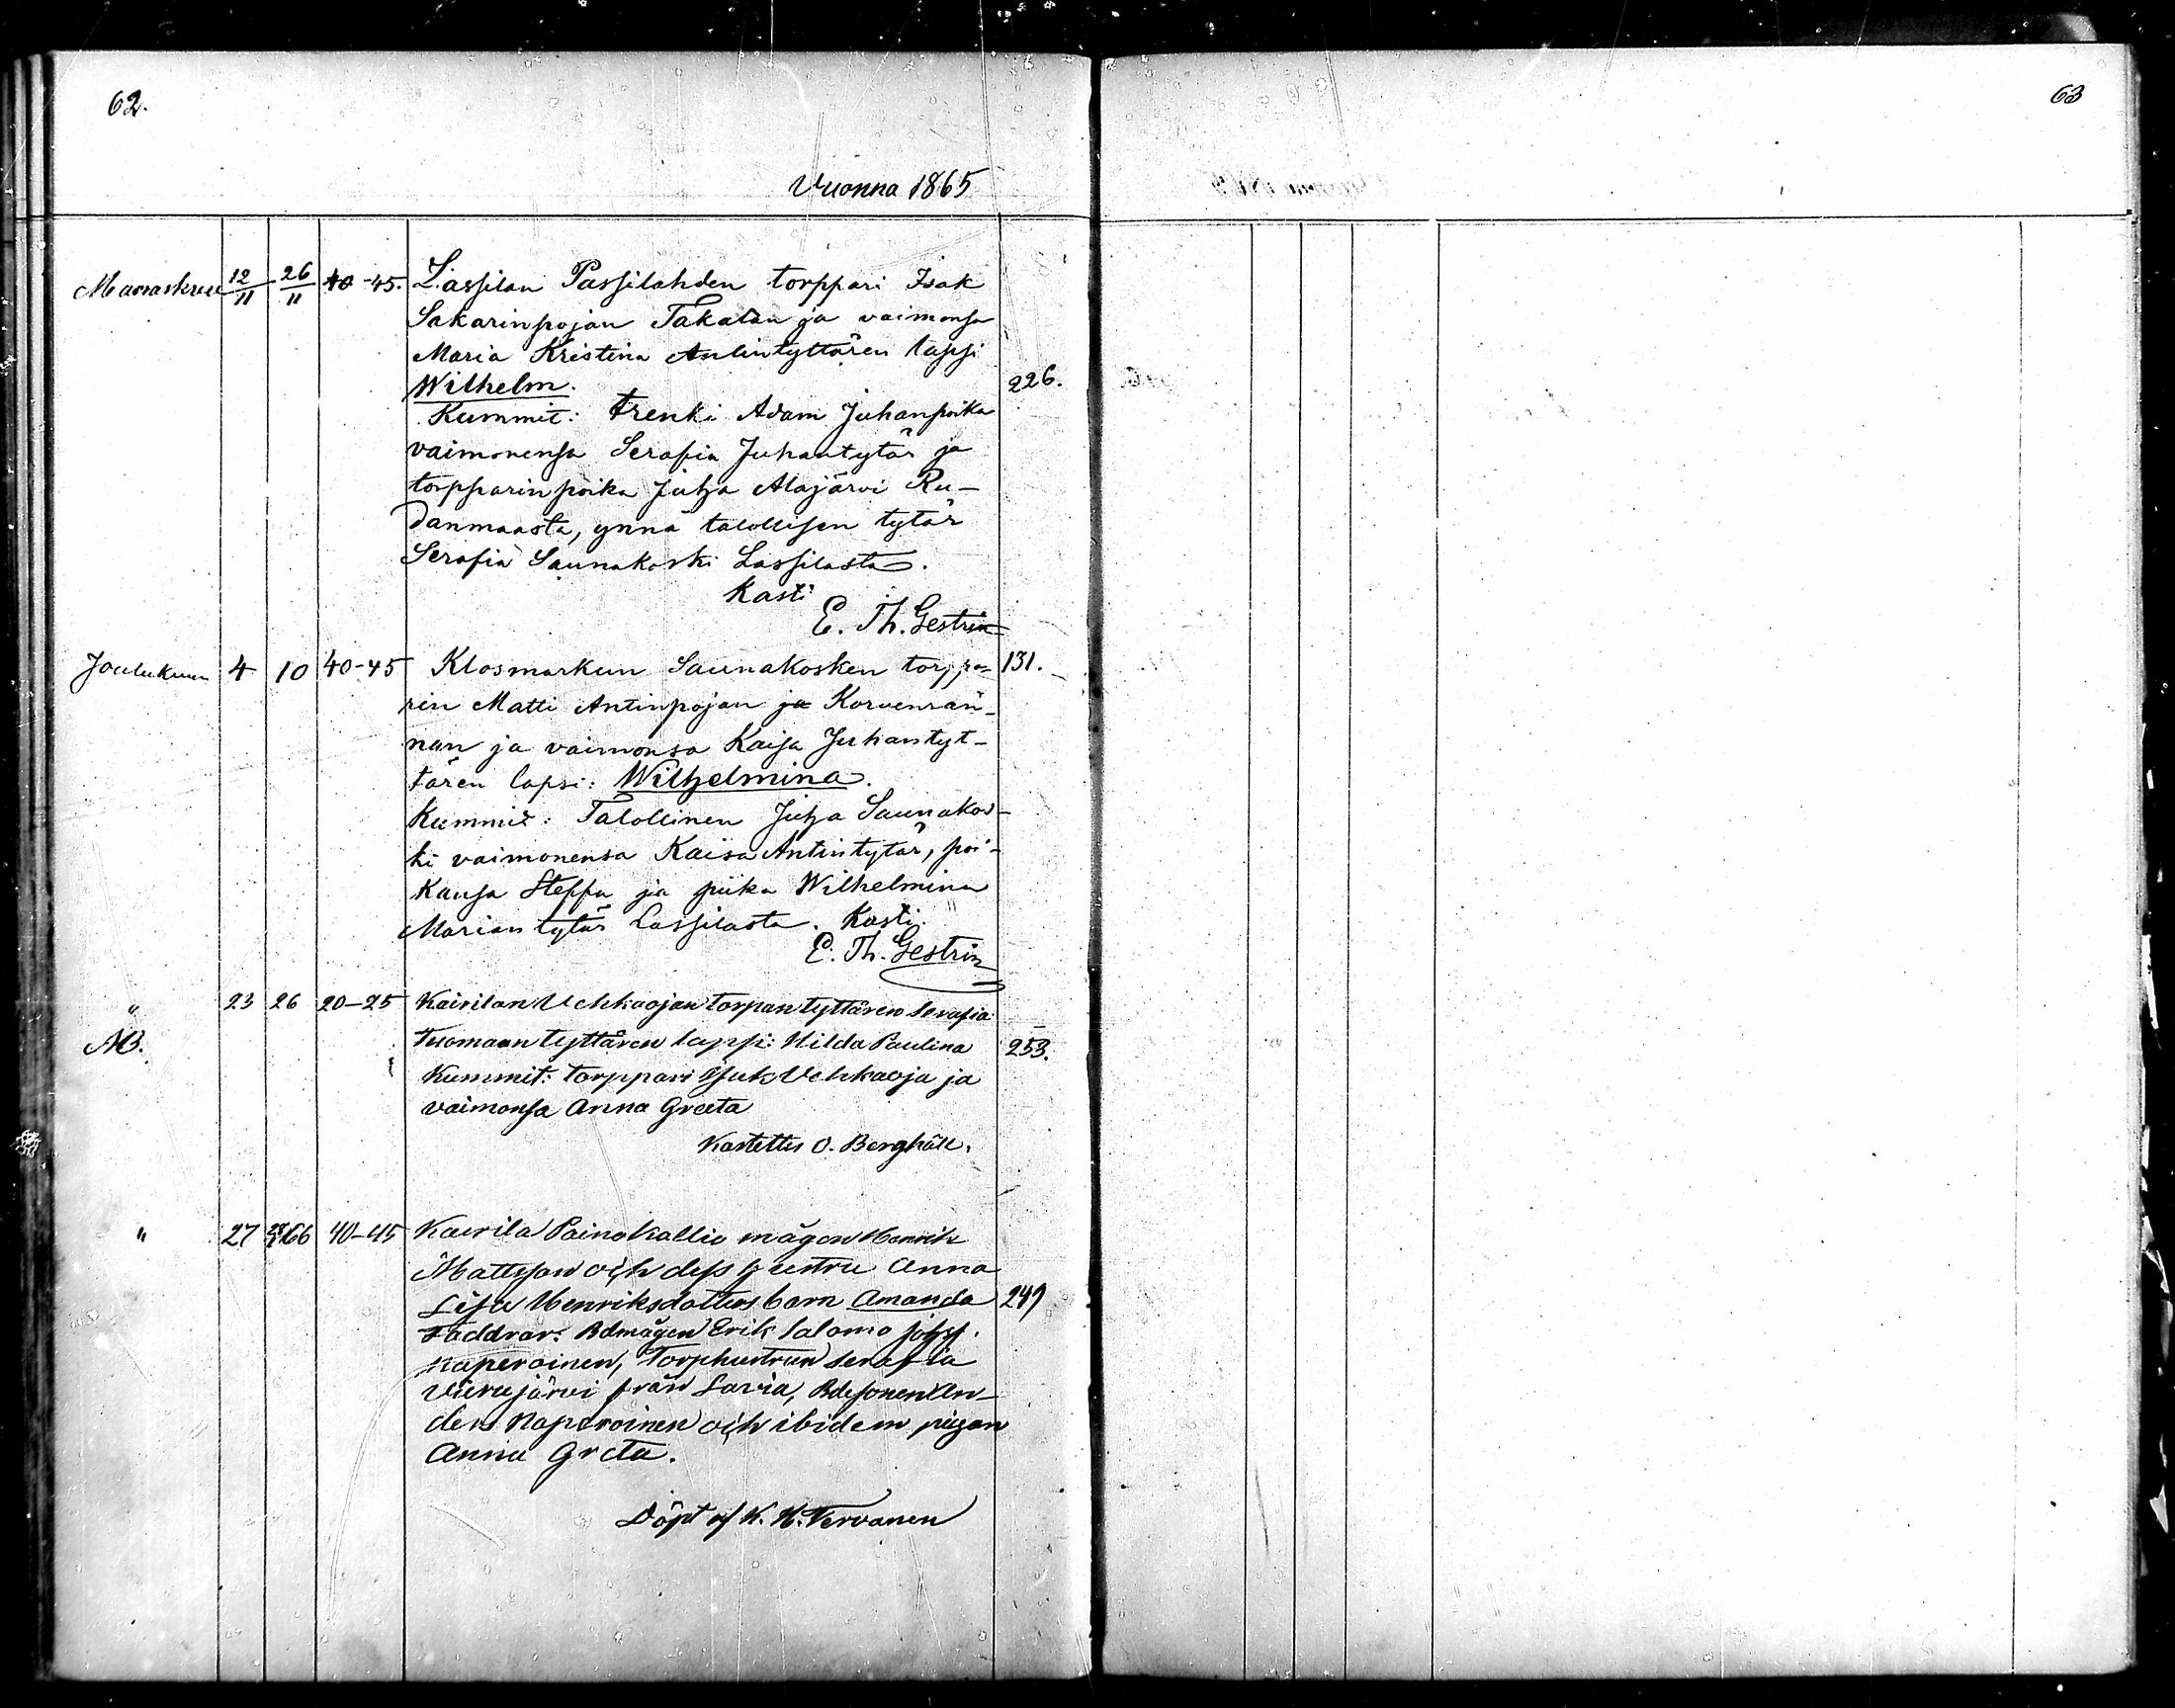 62.
63
Vuonna 1865
Marraskuu 12/11 26/11 40-45. Lassilan Passilahden torppari Isak
Sakarinpojan Takalan ja vaimonsa
Maria Kristina Antintyttären lapsi
Wilhelm. 226.
Kummit: trenki Adam Juhanpoika
vaimonensa Serafia Juhantytär ja
torpparin poika Juha Alajärvi Ru-
danmaasta, ynnä talollisen tytär
Serafia Saunakoski Lassilasta.
Kasti
E. Th. Gestrin
Joulukuu 4 10 40-45 Klosmarkun Saunakosken torppa- 131.
rin Matti Antinpojan ja Korvenrän-
nan ja vaimonsa Kaisa Juhantyt-
tären lapsi: Wilhelmina.
Kummit: Talollinen Juha Saunakos-
ki vaimonensa Kaisa Antintytär, poi-
kansa Steffu ja piika Wilhelmina
Mariantytär Lassilasta. Kasti.
E. Th. Gestrin
" 23 26 20-25 Kairilan Vehkaojan torpan tyttären Serafia
AB. Tuomaan tyttären lapsi: Hilda Paulina 253.
Kummit: torppari Isak Vehkaoja ja
vaimonsa Anna Greeta
Kastettu O. Berghäll.
" 27 66 40-45 Kairila Painokallio mågen Henrik
Mattsson och dess hustru Anna
Lisa Henriksdotters barn Amanda 249
Faddrar: Bdmågen Erik Salomo
Naperoinen, Torphustrun Serafia
Vierujärvi från Lavia, Bdesonen An-
ders Naperoinen och ibidem pigan
Anna Greta.
Döpt af K. H. Tervanen